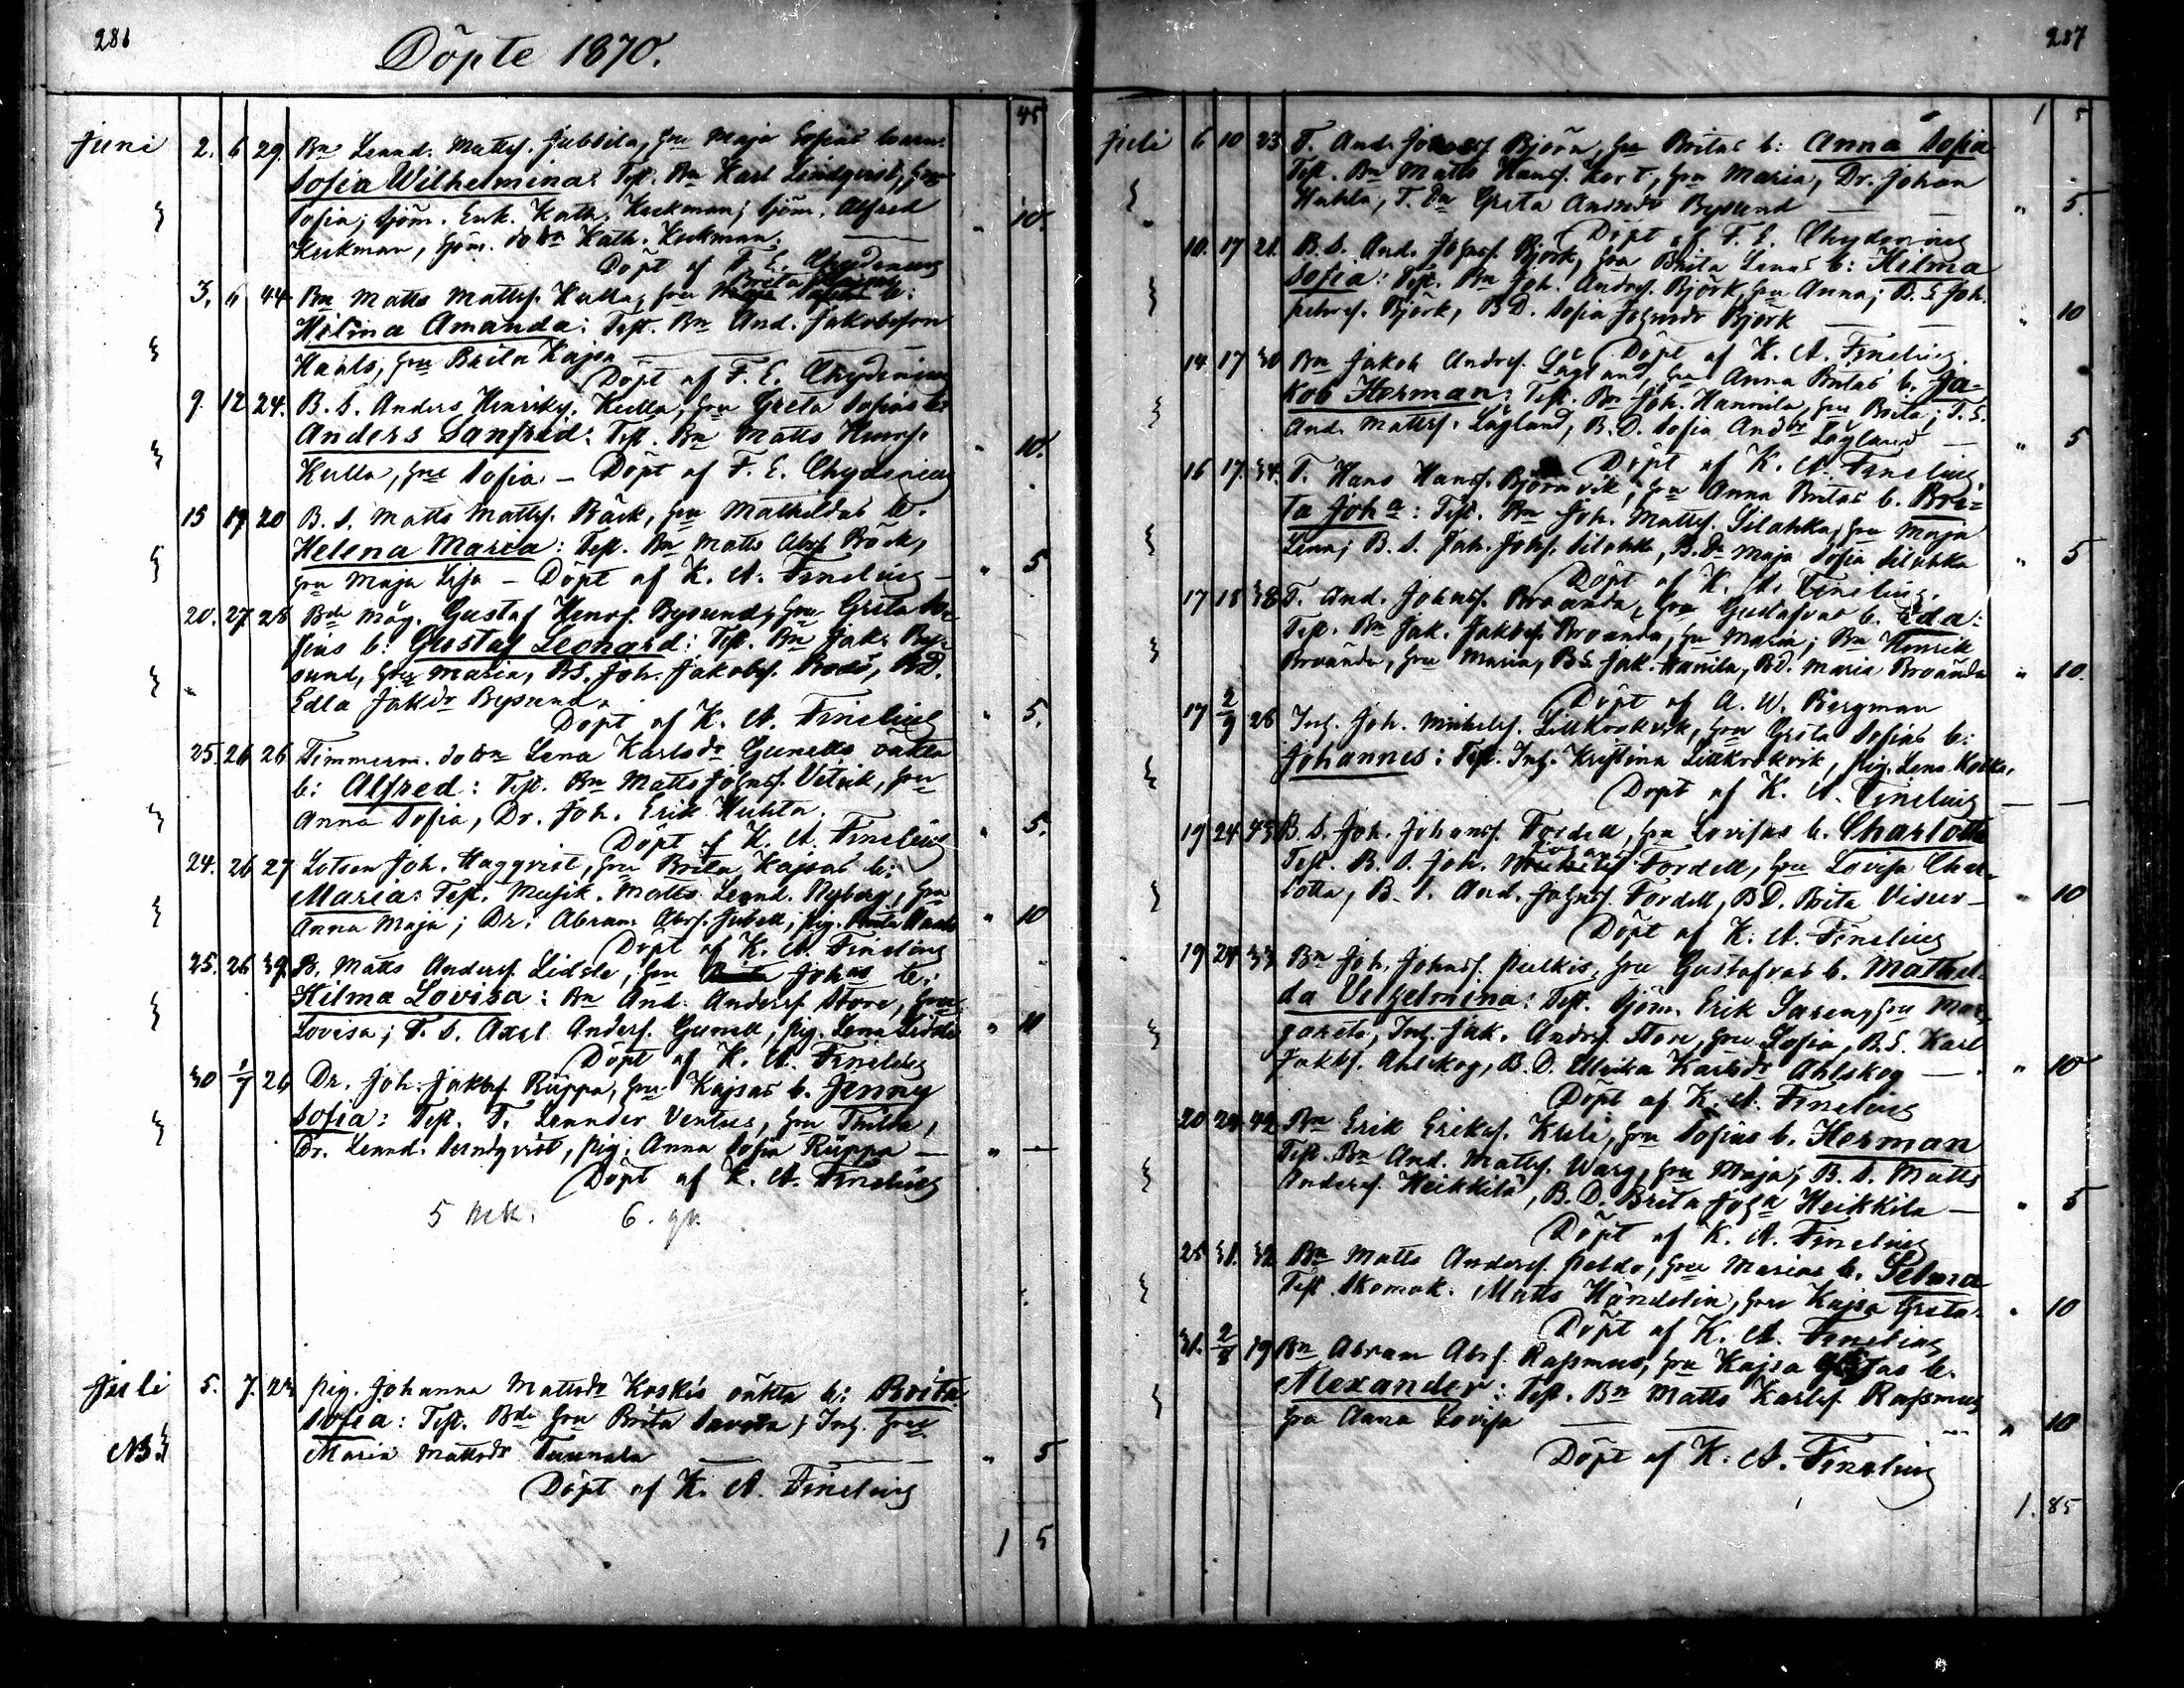 286
Döpte 1870.
45
Juni 2. 6 29. Bn Leand. Mattsf. Jubbila, hru Maja Sofias barn:
Sofia Wilhelmina: Test. Bn Karl Lindqvist, hru
Sofia; Sjöm. Enk. Kath. Keckman; Sjöm. Alfred " 10.
Keckman, Sjöm. dottn Kath. Keckman.
Döpt af F. E. Chydenius
3. 6 44 Bn Matts Mattsf. Kulla, hru b:
Hilma Amanda: Test. Bn And. Jakobsson
Haals, hru Brita Kajsa
Döpt af F. E. Chydenius
9. 12 24. B. S. Anders Henriksf. Kulla, hru Greta Sofias b:
Anders Sanfrid: Test. Bn Matts Henrsf. " 10.
Kulla, hru Sofia – Döpt af F. E. Chydenius
15 19 20 B. S. Matts Mattsf. Bäck, hru Mathildas b.
Helena Maria: Test. Bn Matts Abrsf. Bäck,
hru Maja Lisa – Döpt af K. A. Finelius – " 5
20. 27 28 Bde måg. Gustaf Henrsf. Bysund, hru Greta So-
fias b: Gustaf Leonard: Test. Bn Jak. By-
sund, hru Maria, BS. Joh. Jakobsf. Bodö, BD.
Edla Jakdr Bysund.
Döpt af K. A. Finelius " 5.
25. 26 26 Timmerm. dottn Lena Karlsdr Gunells oäkta
b: Alfred: Test. Bn Matts Johnsf. Vitick, hru
Anna Sofia, Dr. Joh. Erik Huhta.
Döpt af K. A. Finelius " 5.
24. 26 27 Lotsen Joh. Haggvist, hru Brita Kajsas b:
Maria: Test. Musik. Matts Leand. Nyberg, hru
Anna Maja; Dr. Abram Abrsf. Jubell, pig. " 10
Döpt af K. A. Finelius
25. 26 39. B. Matts Andersf. Lidsle, hru Johas b:
Hilma Lovisa: Bn And. Andersf. Store, hru
Lovisa; T. S. Axel Andersf. Gunell, pig. Lena Lidsle " 10
Döpt af K. A. Finelius
30 1/7 26 Dr. Joh. Jakbsf. Rüppa, hru Kajsas b. Jenny
Sofia: Test. T. Leander Ventus, hru Thilda,
Dr. Leand. Serndqvist, pig. Anna Sofia Rüppa – " –
Döpt af K. A. Finelius
5 mk. 6. gr.
Juli 5. 7. 24 pig. Johanna Mattsdr Koskis oäkta b: Brita
Sofia: Test. Bde hru Brita Savola; Inh. hru
NB Maria Mattsdr Tunnala " 5
Döpt af K. A. Finelius
1 5
287
1 5
Juli 6 10 23 T. And. Johnsf. Björn, hru Britas b: Anna Sofia
Test. Bn Matts Hansf. Kort, hru Maria, Dr. Johan
Huhta, T. Dn Greta Andrsdr Bysund – " 5.
Döpt af F. E. Chydenius
10. 17 21. B. S. And. Johnsf. Björk, hru Brita Lenas b: Hilma
Sofia: Test. Bn Joh. Andrsf. Björk, hru Anna; B. S. Joh.
Petersf. Björk, BD. Sofia Johnsdr Björk – " 10
Döpt af K. A. Finelius.
14. 17 30 Bn Jakob Andrsf. Lågland, hru Anna Britas b. Ja-
kob Herman: Test. Bn Joh. Hannila, hru Brita; T. S.
And. Mattsf. Lågland, B. D. Sofia Anddr Lågland – " 5
Döpt af K. A. Finelius
16 17. 34. T. Hans Hansf. Björnvik, hru Anna Britas b. Bri-
ta Joha: Test. Bn Joh. Mattsf. Silahka, hru Maja
Lena; B. S. Joh. Johsf. Silahka, B. Dn Maja Sofia Silahka " 5
Döpt af K. A. Finelius.
17 18 38 T. And. Johnsf. Broända, hru Gustafvas b. Ida:
Test. Bn Jak. Jakobsf. Broända, hru Maria; Bn Henrik
Broända, hru Maria, BS. Jak. Hanila, BD. Maria Broända " 10.
Döpt af A. W. Bergman
17 2/9 26 Inh. Joh. Mickelsf. Lillkrokvik, hru Greta Sofias b:
Johannes: Test. Inh. Kristina Lillkrokvik, pig. Lena Koskka,
Döpt af K. A. Finelius – –
19 24 43 B. S. Joh. Johansf. Fordell, hru Lovisas b. Charlotta
Test. B. S. Joh. Johan Fordell, hru Lovisa Char-
lotta, B. S. And. Johnsf. Fordell, BD. Brita Visur – " 10
Döpt af K. A. Finelius
19 24. 33 Bn Joh. Johnsf. Pulkis, hru Gustafvas b. Mathil-
da Velhelmina: Test. Sjöm. Erik Saren, hru Mar-
gareta, Inh. Jak. Andrsf. Store, hru Sofia, B. S. Karl
Jakbsf. Ahlskog, B. D. Ulrika Karlsdr Ahlskog – " 10
Döpt af K. A. Finelius
20 24 42 Bn Erik Eriksf. Knli, hru Sofias b. Herman
Test. Bn And. Mattsf. Warg, hru Maja; B. S. Matts
Andersf. Heikkilä, B. D. Brita Joha Heikkilä – " 5
Döpt af K. A. Finelius
25 31. 32 Bn Matts Andersf. Peldo, hru Marias b. Selma
Test. Skomak. Matts Händelin, hru Kajsa Greta. " 10
Döpt af K. A. Finelius
31. 2/8 19 Bn Abram Abrsf. Rassmus, hru Kajsa Gretas b.
Alexander: Test. Bn Matts Karlsf. Rassmus
hru Anna Lovisa – " 10
Döpt af K. A. Finelius
1. 85